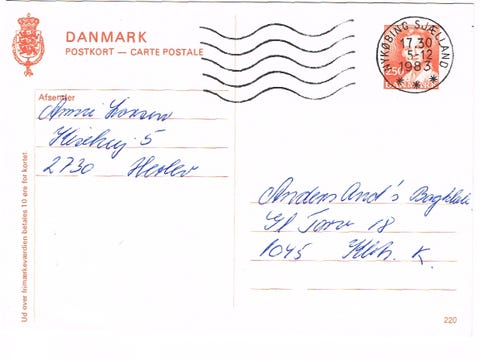 DANMARK
POSTKORT — CARTE POSTALE
NYKØBING SJÆLLAND
17.30
5-12
1983
250
Afsender
Anni
5
2730 Herlev
Anders And's
Gl Torv 18
1045 Kbh. K.
Ud over frimærkeværdien betales 10 øre for kortet
220